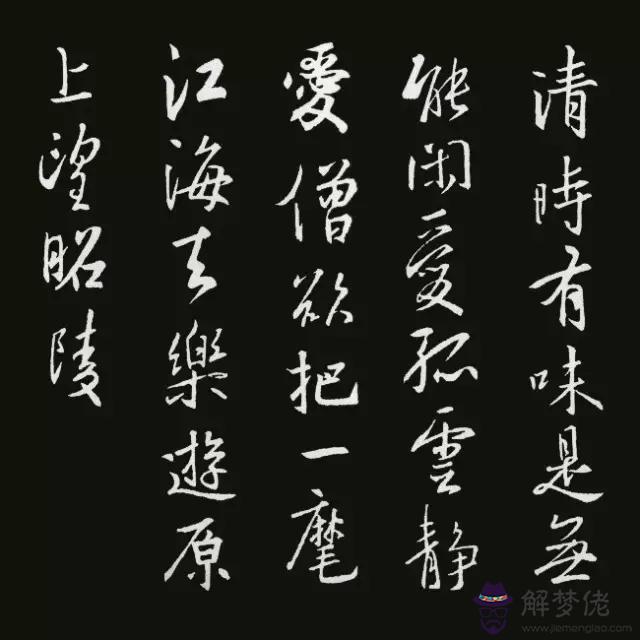 清時有味是無
能閑愛孤雲靜
愛僧欲把一麾
江海去樂遊原
上望昭陵
解梦佬
www.jiemenglao.com